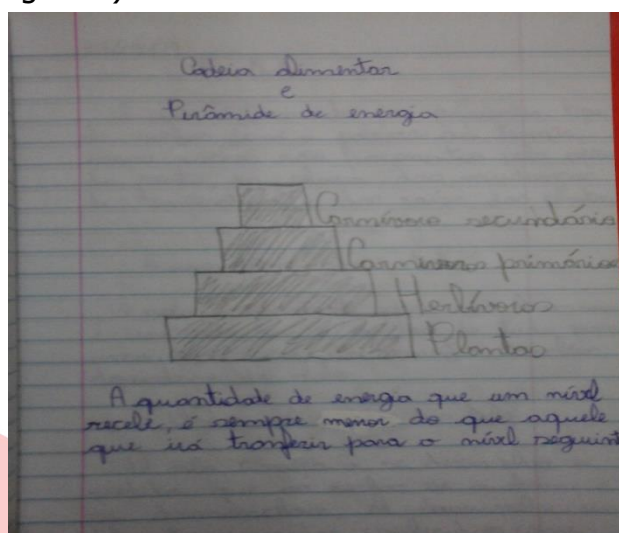 Cadeia alimentar
e
Pirâmide de energia
Carnívoro secundário
Carnívoros primários
Herbívoros
Plantas
A quantidade de energia que um nível
recebe, é sempre menor do que aquele
que irá transferir para o nível seguint